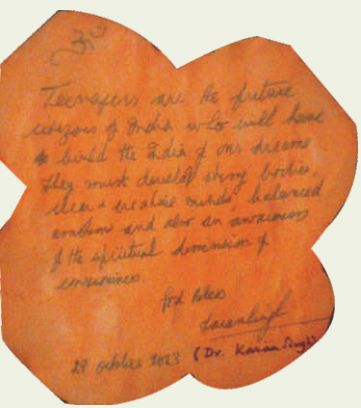 ॐ
Teenagers are the future
citizens of India who will have
to build the India of our dreams
They must develop strong bodies,
clear & creative minds, balanced
emotions and also an awareness
of the spiritual dimension of
consciousness
God bless
Karan Singh
29 October 2023 (Dr. Karan Singh)